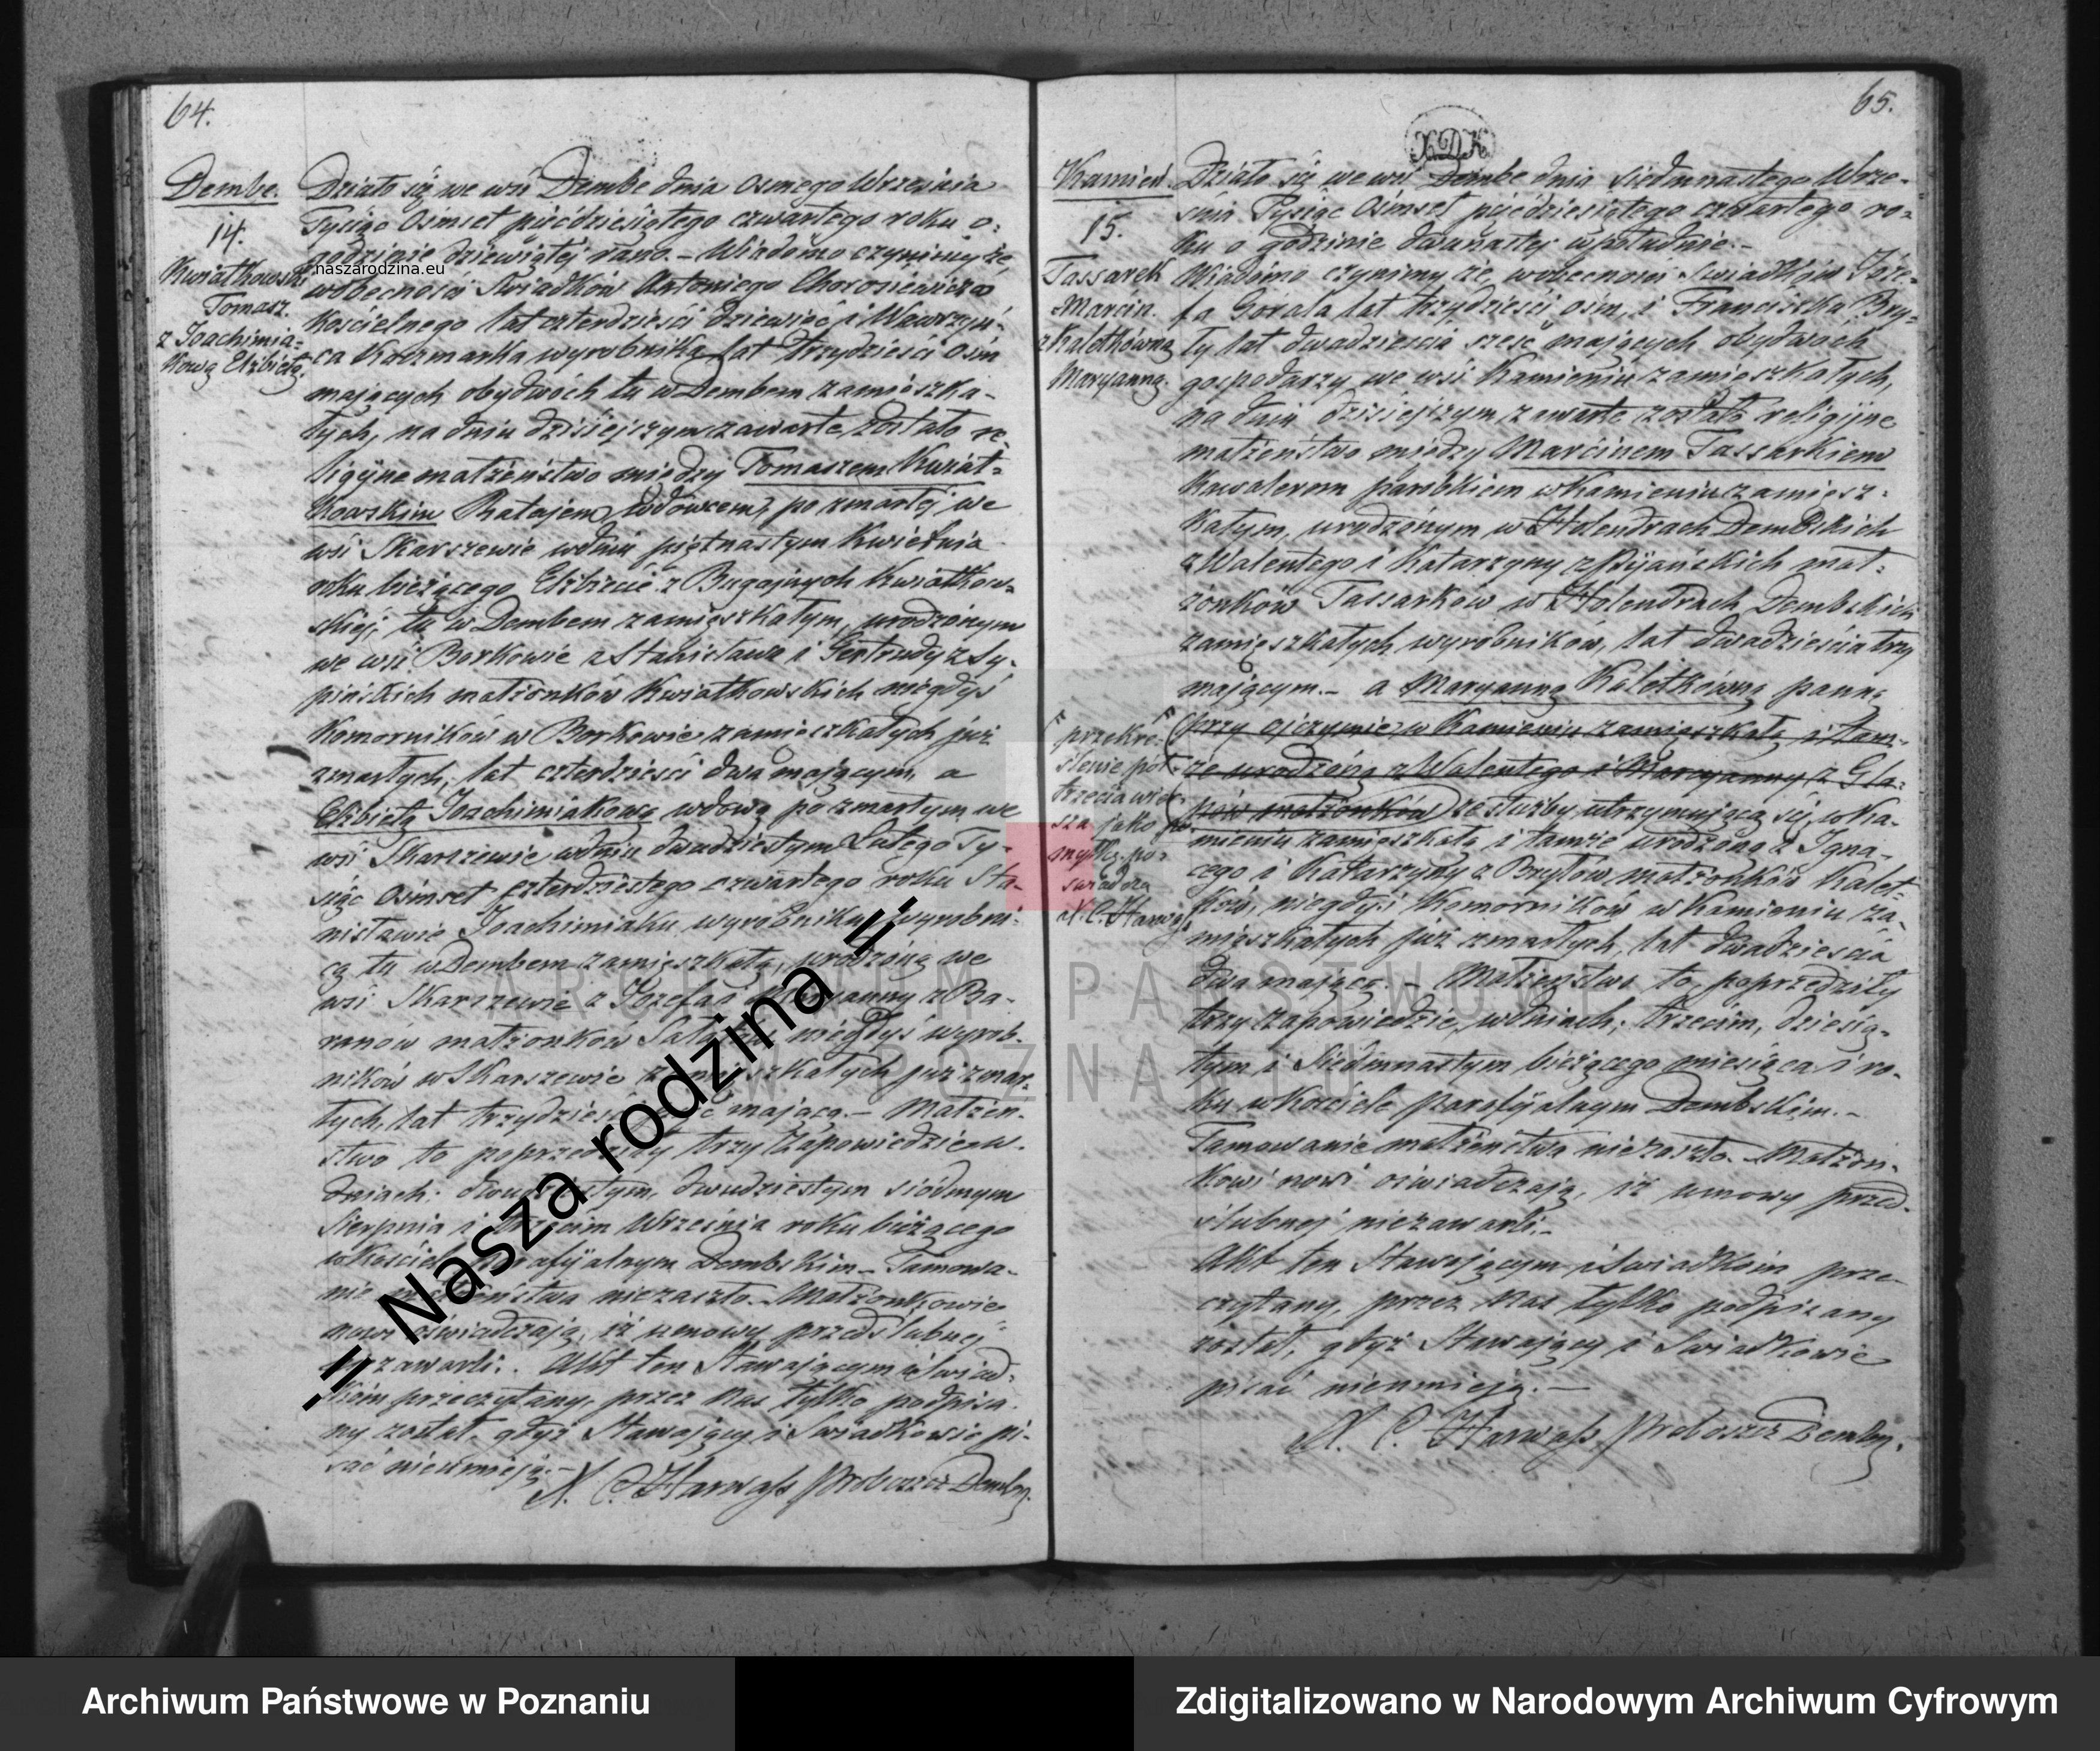 64.
Dembe.
14.
Kwiatkowski
Tomasz.
z Joachimia=
kową Elżbietą.
Działo się we wsi Dembe dnia osmego Września
Tysiąc Osmset pięćdziesiątego czwartego roku o=
godzinie dziewiątej rano. – Wiadomo czyniemy że
naszarodzina.eu
wobecności Świadków Antoniego
Kościelnego lat czterdzieści dziewięć i Wawrzyń=
ca Kaczmarka wyrobnika lat trzydzieści ośm
mających obydwóch tu w Dembem zamieszka-
łych, na dniu dzisiejszym zawarte zostało re
ligijne małżeństwo między Tomaszem Kwiat=
kowskim Ratajem, wdowcem, po zmarłej we
wsi Skarszewie wdniu piętnastym Kwietnia
roku bieżącego Elżbiecie z Bugajnych Kwiatkow=
skiej; tu w Dembem zamieszkałym, urodzonym
we wsi Borkowie z Stanisława i Gertrudy z Ły-
pińskich małżonków Kwiatkowskich niegdyś
Komorników w Borkowie zamieszkałych już
zmarłych; lat czterdzieści dwa mającym, a
Elżbietą Joachimiakową wdową po zmarłym we
wsi Skarszewie wdniu dwudziestym Lutego Ty-
siąc Osmset czterdziestego czwartego roku Sta-
nisławie Joachimiaku wyrobniku, wyrobni=
cą tu w Dembem zamieszkałą, urodzoną we
wsi Skarszewie z Józefa i Maryanny z Ba-
ranów małżonków niegdyś wyrob-
ników w Skarszewie zamieszkałych już zmar-
łych, lat mającą. – Małżeń-
stwo to poprzedziły trzy Zapowiedzie w-
dniach: dwudziestym, dwudziestym siódmym
Sierpnia i trzecim Września roku bieżącego
w Kościele parafijalnym Dembskim – Tamowa-
nie małżeństwa niezaszło. Małżonkowie
nowi oświadczają, iż umowy przedślubnej
niezawarli. Akt ten Stawającym i Świad-
kom przeczytany, przez nas tylko podpisa-
ny został, gdyż Stawający i Świadkowie pi-
sać nieumieją. –
X. C. Harwass Proboszcz Demby.
-= Nasza rodzina =-
65.
XDK
Kamień.
15.
Tassarek
Marcin.
z Kaletkówną
Maryanną.
Działo się we wsi Dembe dnia siedmnastego Wrze-
śnia Tysiąc Ośmset pięćdziesiątego czwartego ro=
ku o godzinie dwunastej wpołudnie. –
Wiadomo czyniemy że, wobecności Świadków Józe=
fa Gorala lat trzydzieści ośm, i Franciszka Bry=
ły lat dwadzieścia sześć mających obydwóch
gospodarzy we wsi Kamieniu zamieszkałych,
na dniu dzisiejszym zawarte zostało religijne
małżeństwo między Marcinem Tassarkiem
Kawalerem parobkiem w Kamieniu zamiesz=
kałym, urodzonym w Holendrach Dembskich
z Walentego i Katarzyny mał=
żonków Tassarków w Holendrach Dembskich
zamieszkałych wyrobników, lat dwadzieścia trzy
mającym. – a Maryanną Kaletkówną panną
(przy ojczymie w Kamieniu zamieszkałą i tam-
że urodzoną z Walentego i Maryanny z Gla=
pów małżonków) ze służby utrzymującą się w Ka-
mieniu zamieszkałą i tamże urodzoną z Igna-
cego i Katarzyny z Bryłów małżonków Kalet-
ków, niegdyś Komorników w Kamieniu za-
mieszkałych już zmarłych, lat dwadzieścia
dwa mającą. – Małżeństwo to, poprzedziły
trzy zapowiedzie, wdniach: trzecim, dziesią-
tym i Siedmnastym bieżącego miesiąca i ro-
ku w Kościele parafijalnym Dembskim. –
Tamowanie małżeństwa niezaszło. Małżon-
kowi nowi oświadczają, iż umowy przed-
ślubnej niezawarli. –
Akt ten Stawającym i Świadkom prze-
czytany, przez nas tylko podpisany
został, gdyż Stawający i Świadkowie
pisać nieumieją. –
X. C. Harwass Proboszcz Demby.
przekre-
ślenie pół=
trzecia wier-
sza jako po-
myłkę po=
świadcza
X. C. Harwass
ARCHIWUM PAŃSTWOWE
W POZNANIU
Archiwum Państwowe w Poznaniu
Zdigitalizowano w Narodowym Archiwum Cyfrowym